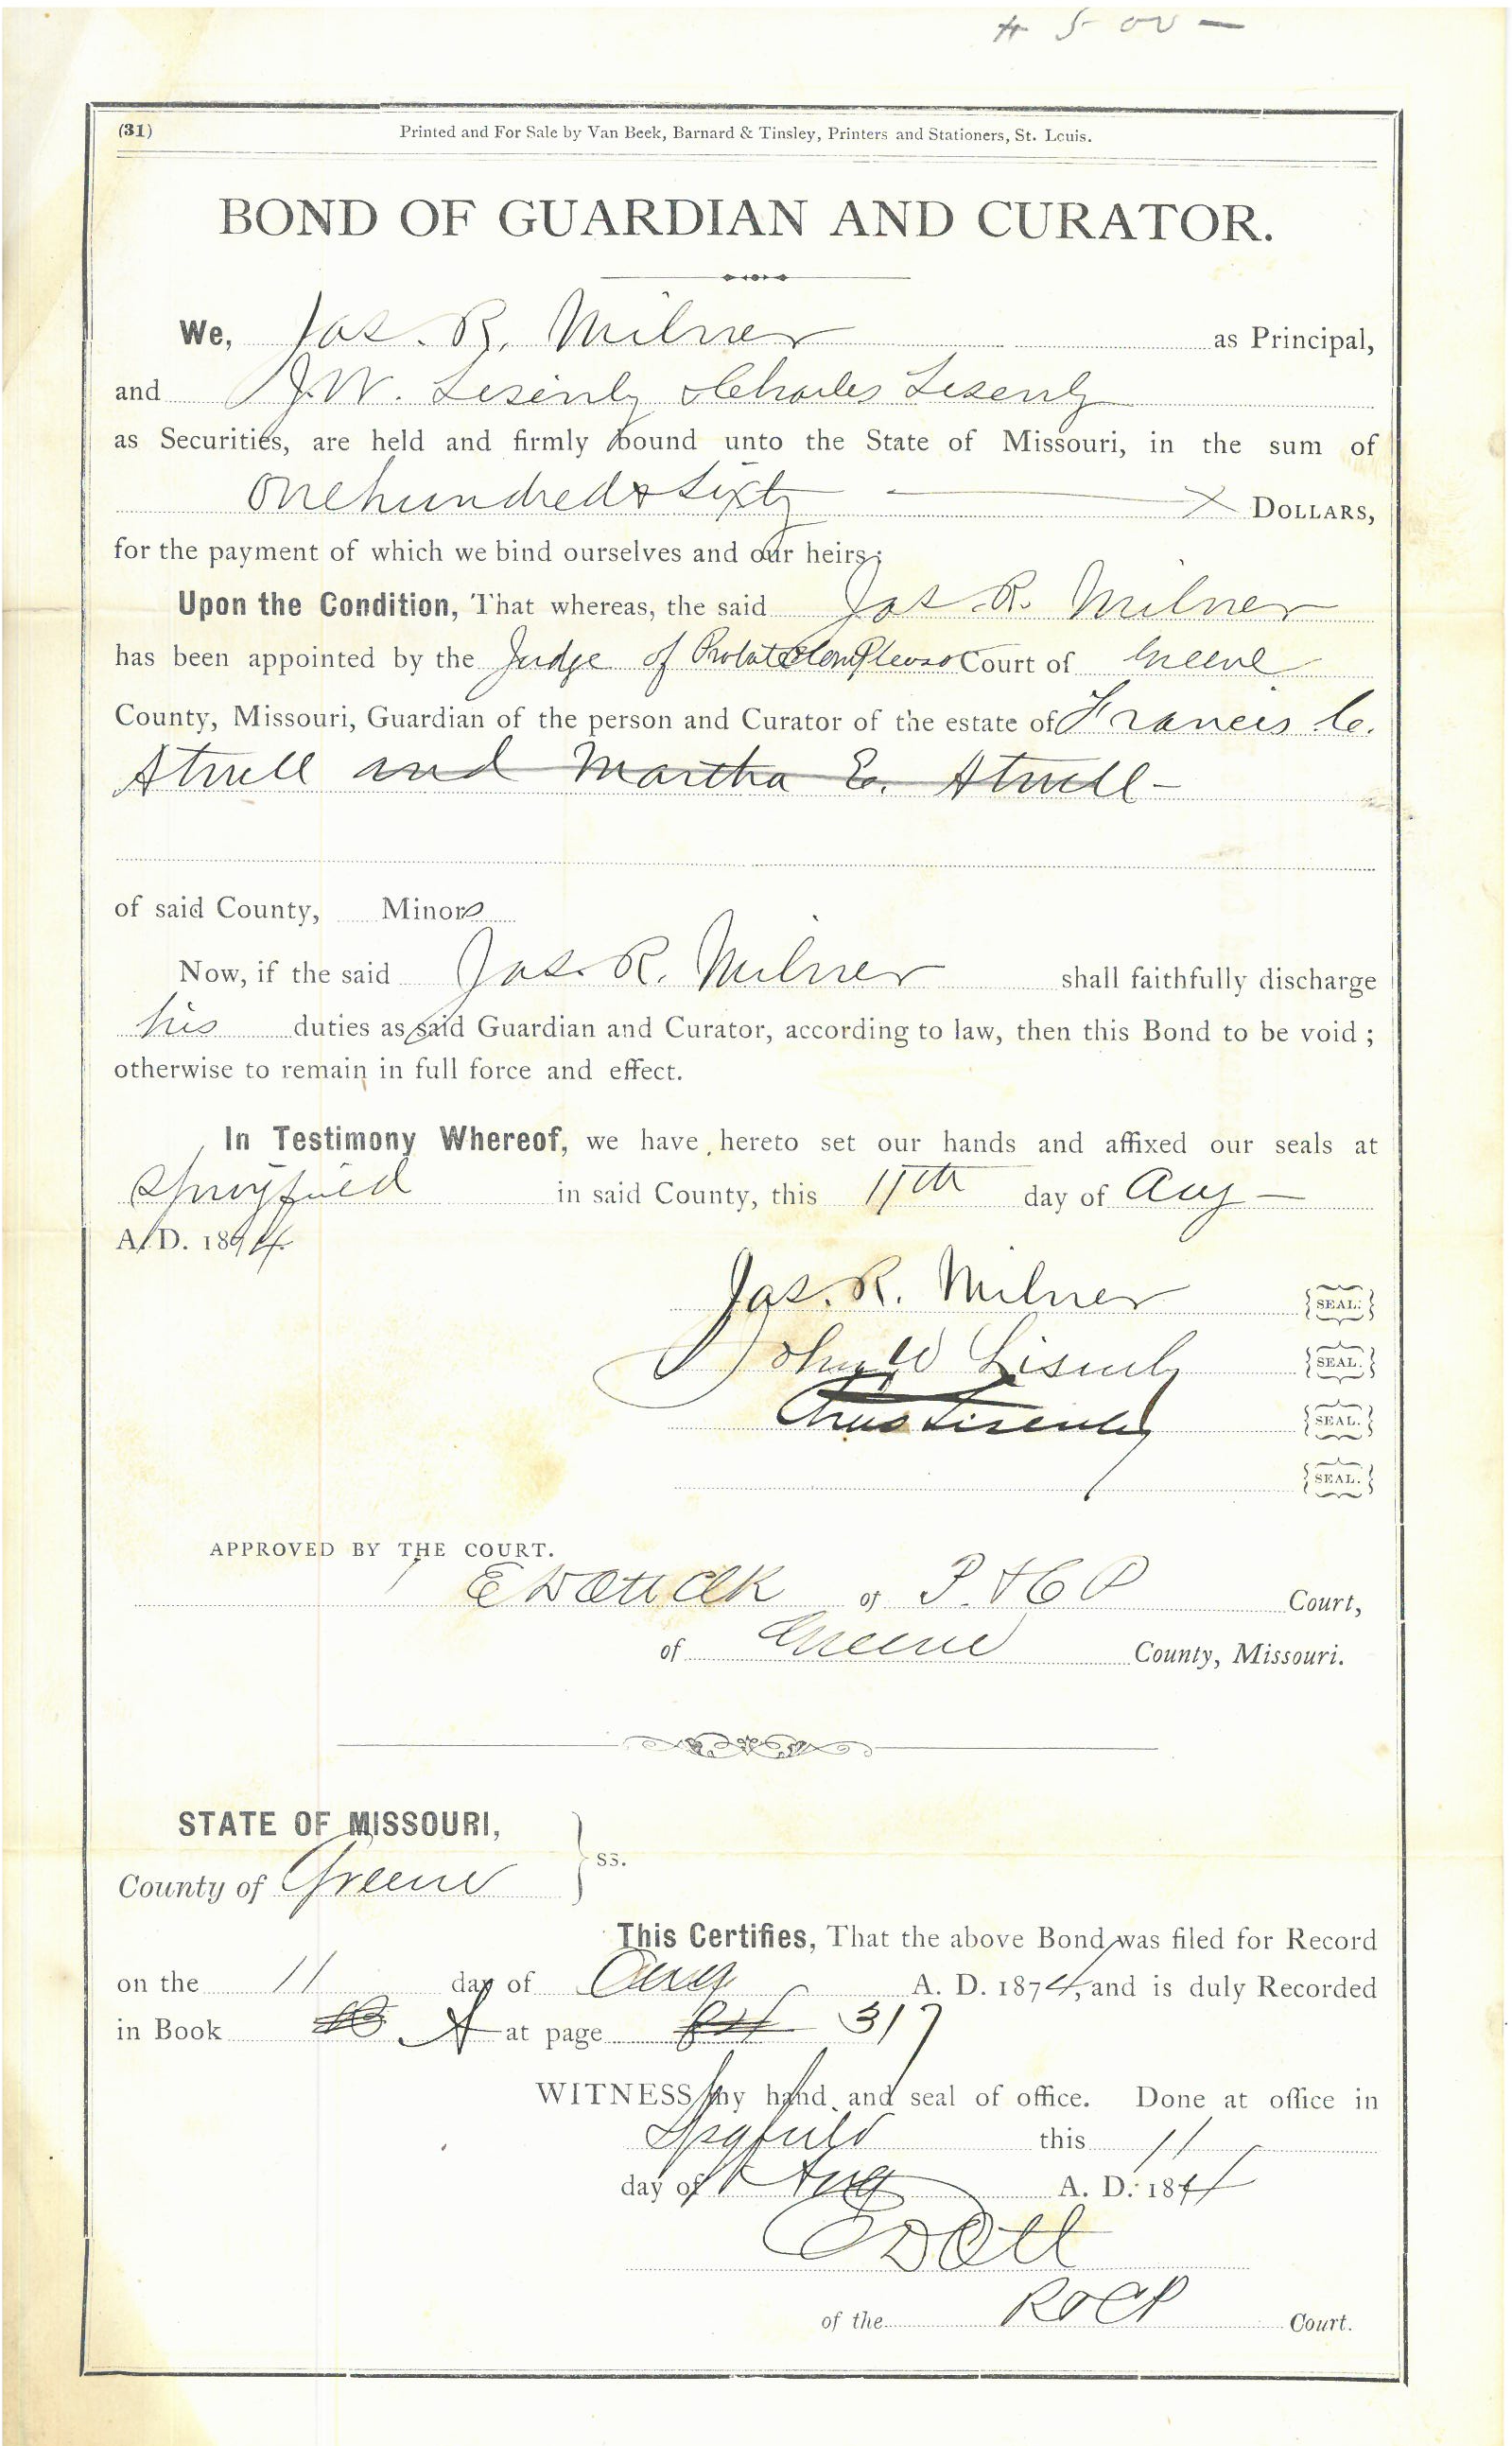 # 5 00 —
(31) Printed and For Sale by Van Beek, Barnard & Tinsley, Printers and Stationers, St. Louis.
BOND OF GUARDIAN AND CURATOR.
We, Jas. R. Milner as Principal,
and J. W. Lisenby & Charles Lisenby
as Securities, are held and firmly bound unto the State of Missouri, in the sum of
One hundred & Sixty DOLLARS,
for the payment of which we bind ourselves and our heirs;
Upon the Condition, That whereas, the said Jas. R. Milner
has been appointed by the Judge of Probate & Com Pleas Court of Greene
County, Missouri, Guardian of the person and Curator of the estate of Francis C.
Atwell and Martha E. Atwell —
of said County, Minors
Now, if the said Jas. R. Milner shall faithfully discharge
his duties as said Guardian and Curator, according to law, then this Bond to be void;
otherwise to remain in full force and effect.
In Testimony Whereof, we have hereto set our hands and affixed our seals at
Springfield in said County, this 11th day of Aug —
A. D. 1874.
Jas. R. Milner {SEAL.}
John W Lisenby {SEAL.}
Chas Lisenby {SEAL.}
{SEAL.}
APPROVED BY THE COURT.
E D Ott Clk of P. & C P Court,
of Greene County, Missouri.
STATE OF MISSOURI,
ss.
County of Greene
This Certifies, That the above Bond was filed for Record
on the 11 day of Aug A. D. 1874, and is duly Recorded
in Book A at page 317
WITNESS my hand and seal of office. Done at office in
Spgfield this 11
day of Aug A. D. 1874
E D Ott
of the P & C P Court.